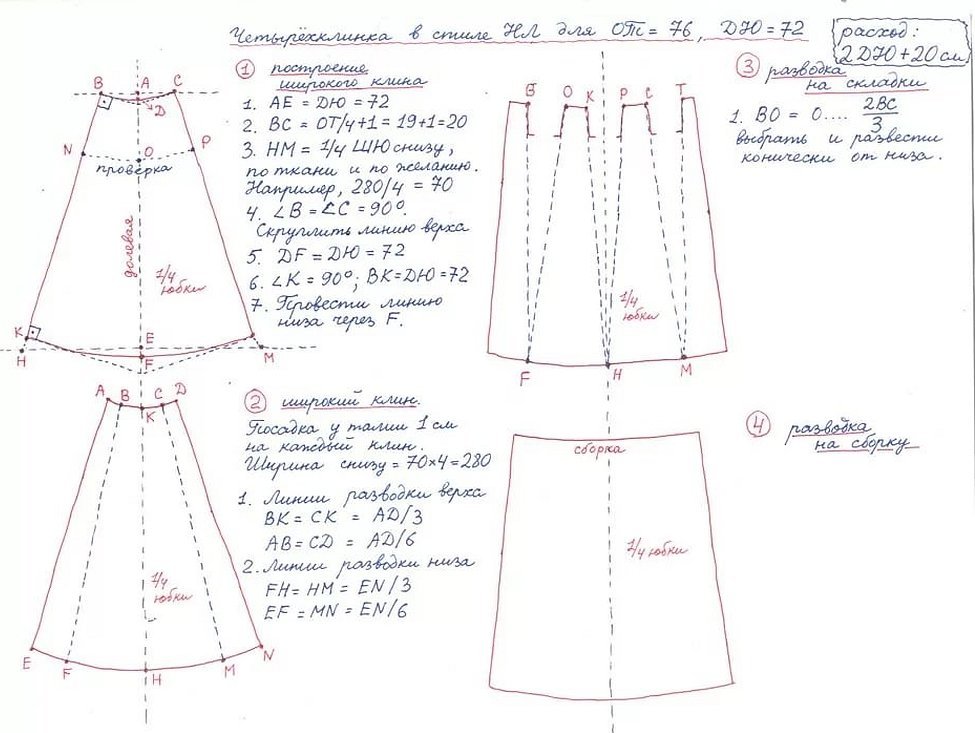 Четырёхклинка в стиле НЛ для ОТ = 76, ДЮ = 72
расход:
2ДЮ + 20 см
① построение
широкого клина
1. AE = ДЮ = 72
2. BC = ОТ/4 + 1 = 19+1 = 20
3. HM = 1/4 ШЮ снизу,
по ткани и по желанию.
Например, 280/4 = 70
4. ∠B = ∠C = 90°.
Скруглить линию верха
5. DF = ДЮ = 72
6. ∠K = 90°; BK = ДЮ = 72
7. Провести линию
низа через F.
B A C
D
N O P
проверка
долевая
1/4
юбки
K E
H F M
② широкий клин.
Посадка у талии 1 см
на каждый клин.
Ширина снизу = 70×4 = 280
1. Линии разводки верха
BK = CK = AD/3
AB = CD = AD/6
2. Линии разводки низа
FH = HM = EN/3
EF = MN = EN/6
A B C D
K
1/4
юбки
E F H M N
③ разводка
на складки
1. BO = O.... 2BC/3
выбрать и развести
конически от низа.
B O K P C T
1/4
юбки
F H M
④ разводка
на сборку
сборка
1/4 юбки